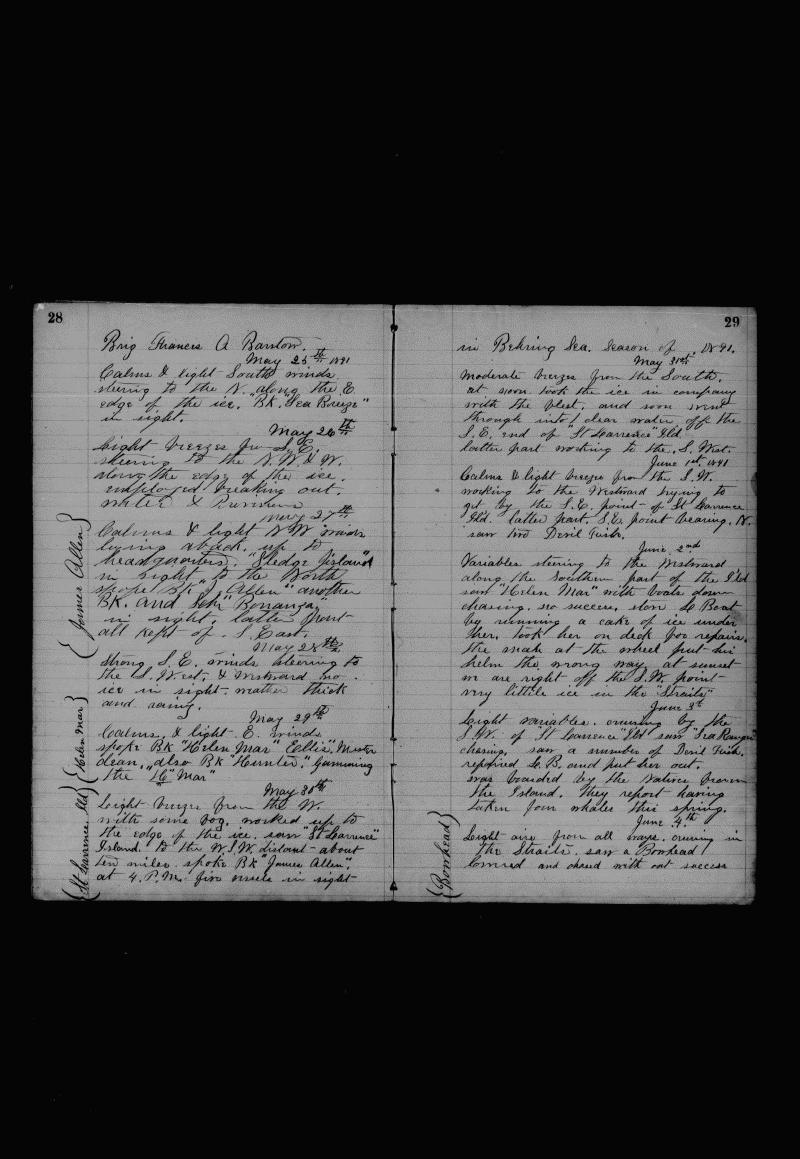 28
Brig Frances A Barstow.
May 25th 1891
Calms & light South winds
steering to the N. along the E.
edge of the ice. "BK. "Sea Breeze"
in sight.
May 26th
Light breezes from S.E.
steering to the N.W. & W.
along the edge of the ice.
employed breaking out.
water &
May 27th
Calms & light N.W. winds
lying aback. up to
headquarters. "Sledge Island"
in sight to the North
spoke BK "J Allen" another
BK. and Schr "Bonanza"
in sight, latter part
all kept of. S. East.
{James Allen}
May 28th
Strong S.E. winds steering to
the S. West. & Westward no
ice in sight. weather thick
and rainy.
May 29th
Calms. & light E. winds
spoke BK "Helen Mar" Ellis. Master
clean. also BK "Hunter." Gamming
the "H" Mar"
{Helen Mar}
May 30th
Light breezes from the W.
with some fog. worked up to
the edge of the ice. saw "St Lawrence"
Island. to the W.S.W. distant about
ten miles. spoke BK "James Allen".
at 4. P.M. five vessels in sight
{St Lawrence. Ild}
29
in Behring Sea. Season of 1891.
May 31st
Moderate breezes from the South.
at noon took the ice in company
with the fleet. and soon went
through into clear water off the
S.E. end of "St Lawrence" Ild
latter part working to the S. West.
June 1st 1891
Calms & light breezes from the S.W.
working to the Westward trying to
get by the S.E. point of St Lawrence
Ild. latter part. S.E. point bearing. N.
saw two Devil Fish.
June 2nd
Variables steering to the Westward
along the Southern part of the I'ld
saw "Helen Mar" with boats down
chasing. no success. stove L. Boat
by running a cake of ice under
her. took her on deck for repairs.
the man at the wheel put his
helm the wrong way. at sunset
we are right off the S.W. point
very little ice in the "Straits"
June 3d
Light variables. cruising by the
S.W. of "St Lawrence" Ild saw "Sea Ranger"
chasing. saw a number of Devil Fish.
repaired L.B. and put her out.
was boarded by the Natives from
the Island. They report having
taken four whales this spring.
June 4th
Light airs from all ways. cruising in
the Straits. saw a Bowhead.
lowered and chased with out success
{Bowhead}